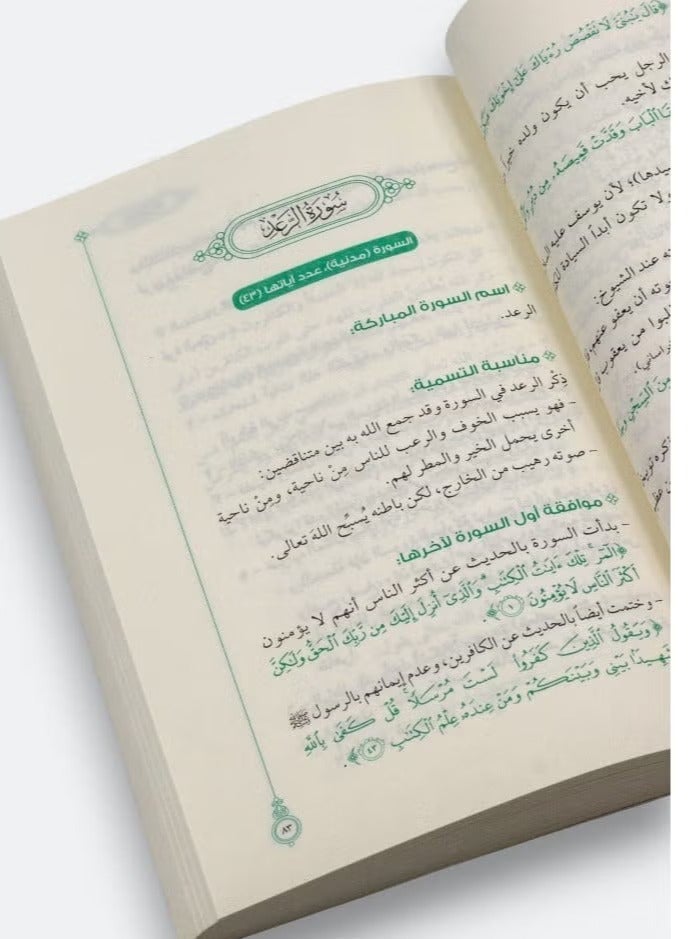 ﴿قَالَ يَٰبُنَيَّ لَا تَقۡصُصۡ رُءۡيَاكَ عَلَىٰٓ إِخۡوَتِكَ
الرجل يحب أن يكون ولده خيراً
لأخيه.
ٱلۡبَابَ وَقَدَّتۡ قَمِيصَهُۥ مِن دُبُرٖ
سيدها)؛ لأن يوسف عليه
ولا تكون أبداً السيادة
عند الشيوخ:
أن يعفو عنهم،
من يعقوب
مِنَ ٱلسِّجۡنِ
سُورَةُ الرَّعْدِ
السورة (مدنية)، عدد آياتها (٤٣)
اسم السورة المباركة:
الرعد.
مناسبة التسمية:
ذِكْر الرعد في السورة وقد جمع الله به بين متناقضين:
- فهو يسبب الخوف والرعب للناس مِنْ ناحية، ومِنْ ناحية
أخرى يحمل الخير والمطر لهم.
- صوته رهيب من الخارج، لكن باطنه يُسبِّح اللهَ تعالى.
موافقة أول السورة لآخرها:
- بدأت السورة بالحديث عن أكثر الناس أنهم لا يؤمنون
﴿الٓمٓرۚ تِلۡكَ ءَايَٰتُ ٱلۡكِتَٰبِۗ وَٱلَّذِيٓ أُنزِلَ إِلَيۡكَ مِن رَّبِّكَ ٱلۡحَقُّ وَلَٰكِنَّ
أَكۡثَرَ ٱلنَّاسِ لَا يُؤۡمِنُونَ ١﴾.
- وختمت أيضاً بالحديث عن الكافرين، وعدم إيمانهم بالرسول ﷺ
﴿وَيَقُولُ ٱلَّذِينَ كَفَرُواْ لَسۡتَ مُرۡسَلٗاۚ قُلۡ كَفَىٰ بِٱللَّهِ
شَهِيدَۢا بَيۡنِي وَبَيۡنَكُمۡ وَمَنۡ عِندَهُۥ عِلۡمُ ٱلۡكِتَٰبِ ٤٣﴾.
٨٣